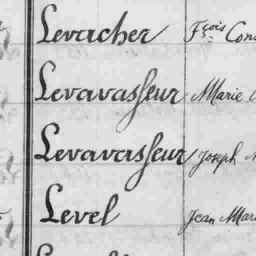 Levacher Fçois Cons
Levavasseur Marie
Levavasseur Joseph
Level Jean Mari